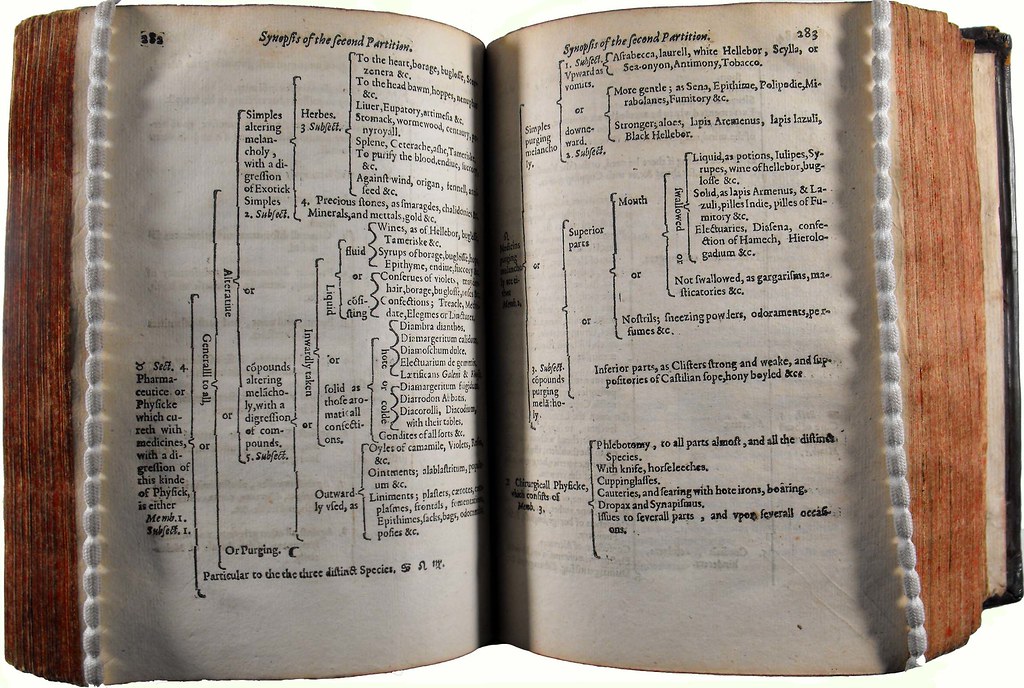 282
Synopsis of the second Partition.
♉ Sect. 4.
Pharma-
ceutice or
Physicke
which cu-
reth with
medicines,
with a di-
gression of
this kinde
of Physick,
is either
Memb. 1.
Subsect. 1.
Generall to all,
or
Alterative
or
Simples
altering
melan-
choly,
with a di-
gression
of Exotick
Simples
2. Subsect.
or
cōpounds
altering
melācho-
ly, with a
digression
of com-
pounds.
5. Subsect.
Herbes.
3 Subsect.
To the heart, borage, buglosse,
zonera &c.
To the head bawm, hoppes,
&c.
Liver, Eupatory, artimesia &c.
Stomack, wormewood, centaury,
nyroyall.
Splene, Ceterache, ashe, Tameriske
To purifie the blood, endive,
&c.
Against wind, origan, fennell,
seed &c.
4. Precious stones, as smaragdes, chalidonies &c.
Minerals, and mettals, gold &c.
Inwardly taken
or
Liquid
or
fluid
or
cōsi-
sting
Wines, as of Hellebor, buglosse,
Tameriske &c.
Syrups of borage, buglosse,
Epithyme, endive, succory
Conserves of violets,
hair, borage, buglosse, roses &c.
Confections; Treacle,
date, Elegmes or Linctures.
solid as
those aro-
maticall
confecti-
ons.
hote
or
colde
Diambra dianthos.
Diamargeritum calidum
Diamoschum dulce.
Electuarium de gemmis.
Lætificans Galeni &
Diamargeritum frigidum
Diarrodon Abbatis.
Diacorolli, Diacodium,
with their tables.
Condites of all sorts &c.
Outward-
ly vsed, as
Oyles of camamile, Violets,
&c.
Ointments; alablastritum,
um &c.
Liniments; plasters, cerotes,
plasmes, frontals, fomentations,
Epithimes, sacks, bags, odoraments,
posies &c.
Or Purging. ☾
Particular to the the three distinct Species, ♋ ♌ ♍.
Synopsis of the second Partition.
283
Simples
purging
melancho
ly.
1. Subsect.
Vpward as
vomits.
or
downe-
ward.
2. Subsect.
Astrabecca, laurell, white Hellebor, Scylla, or
Sea-onyon, Antimony, Tobacco.
More gentle; as Sena, Epithime, Polipodie, Mi-
rabolanes, Fumitory &c.
Stronger; aloes, lapis Armenus, lapis lazuli,
Black Hellebor.
or
3. Subsect.
cōpounds
purging
melācho-
ly.
Superior
parts
or
Mouth
or
swallowed
or
Liquid, as potions, Iulipes, Sy-
rupes, wine of hellebor, bug-
losse &c.
Solid, as lapis Armenus, & La-
zuli, pilles Indie, pilles of Fu-
mitory &c.
Electuaries, Diasena, confe-
ction of Hamech, Hierolo-
gadium &c.
Not swallowed, as gargarisms, ma-
sticatories &c.
Nostrils; sneezing powders, odoraments, per-
fumes &c.
Inferior parts, as Clisters strong and weake, and sup-
positories of Castilian sope, hony boyled &c.
Chirurgicall Physicke,
which consists of
Memb. 3.
Phlebotomy, to all parts almost, and all the distinct
Species.
With knife, horseleeches.
Cuppinglasses.
Cauteries, and searing with hote irons, boaring.
Dropax and Synapismus.
Issues to severall parts, and vpon severall occasi-
ons.